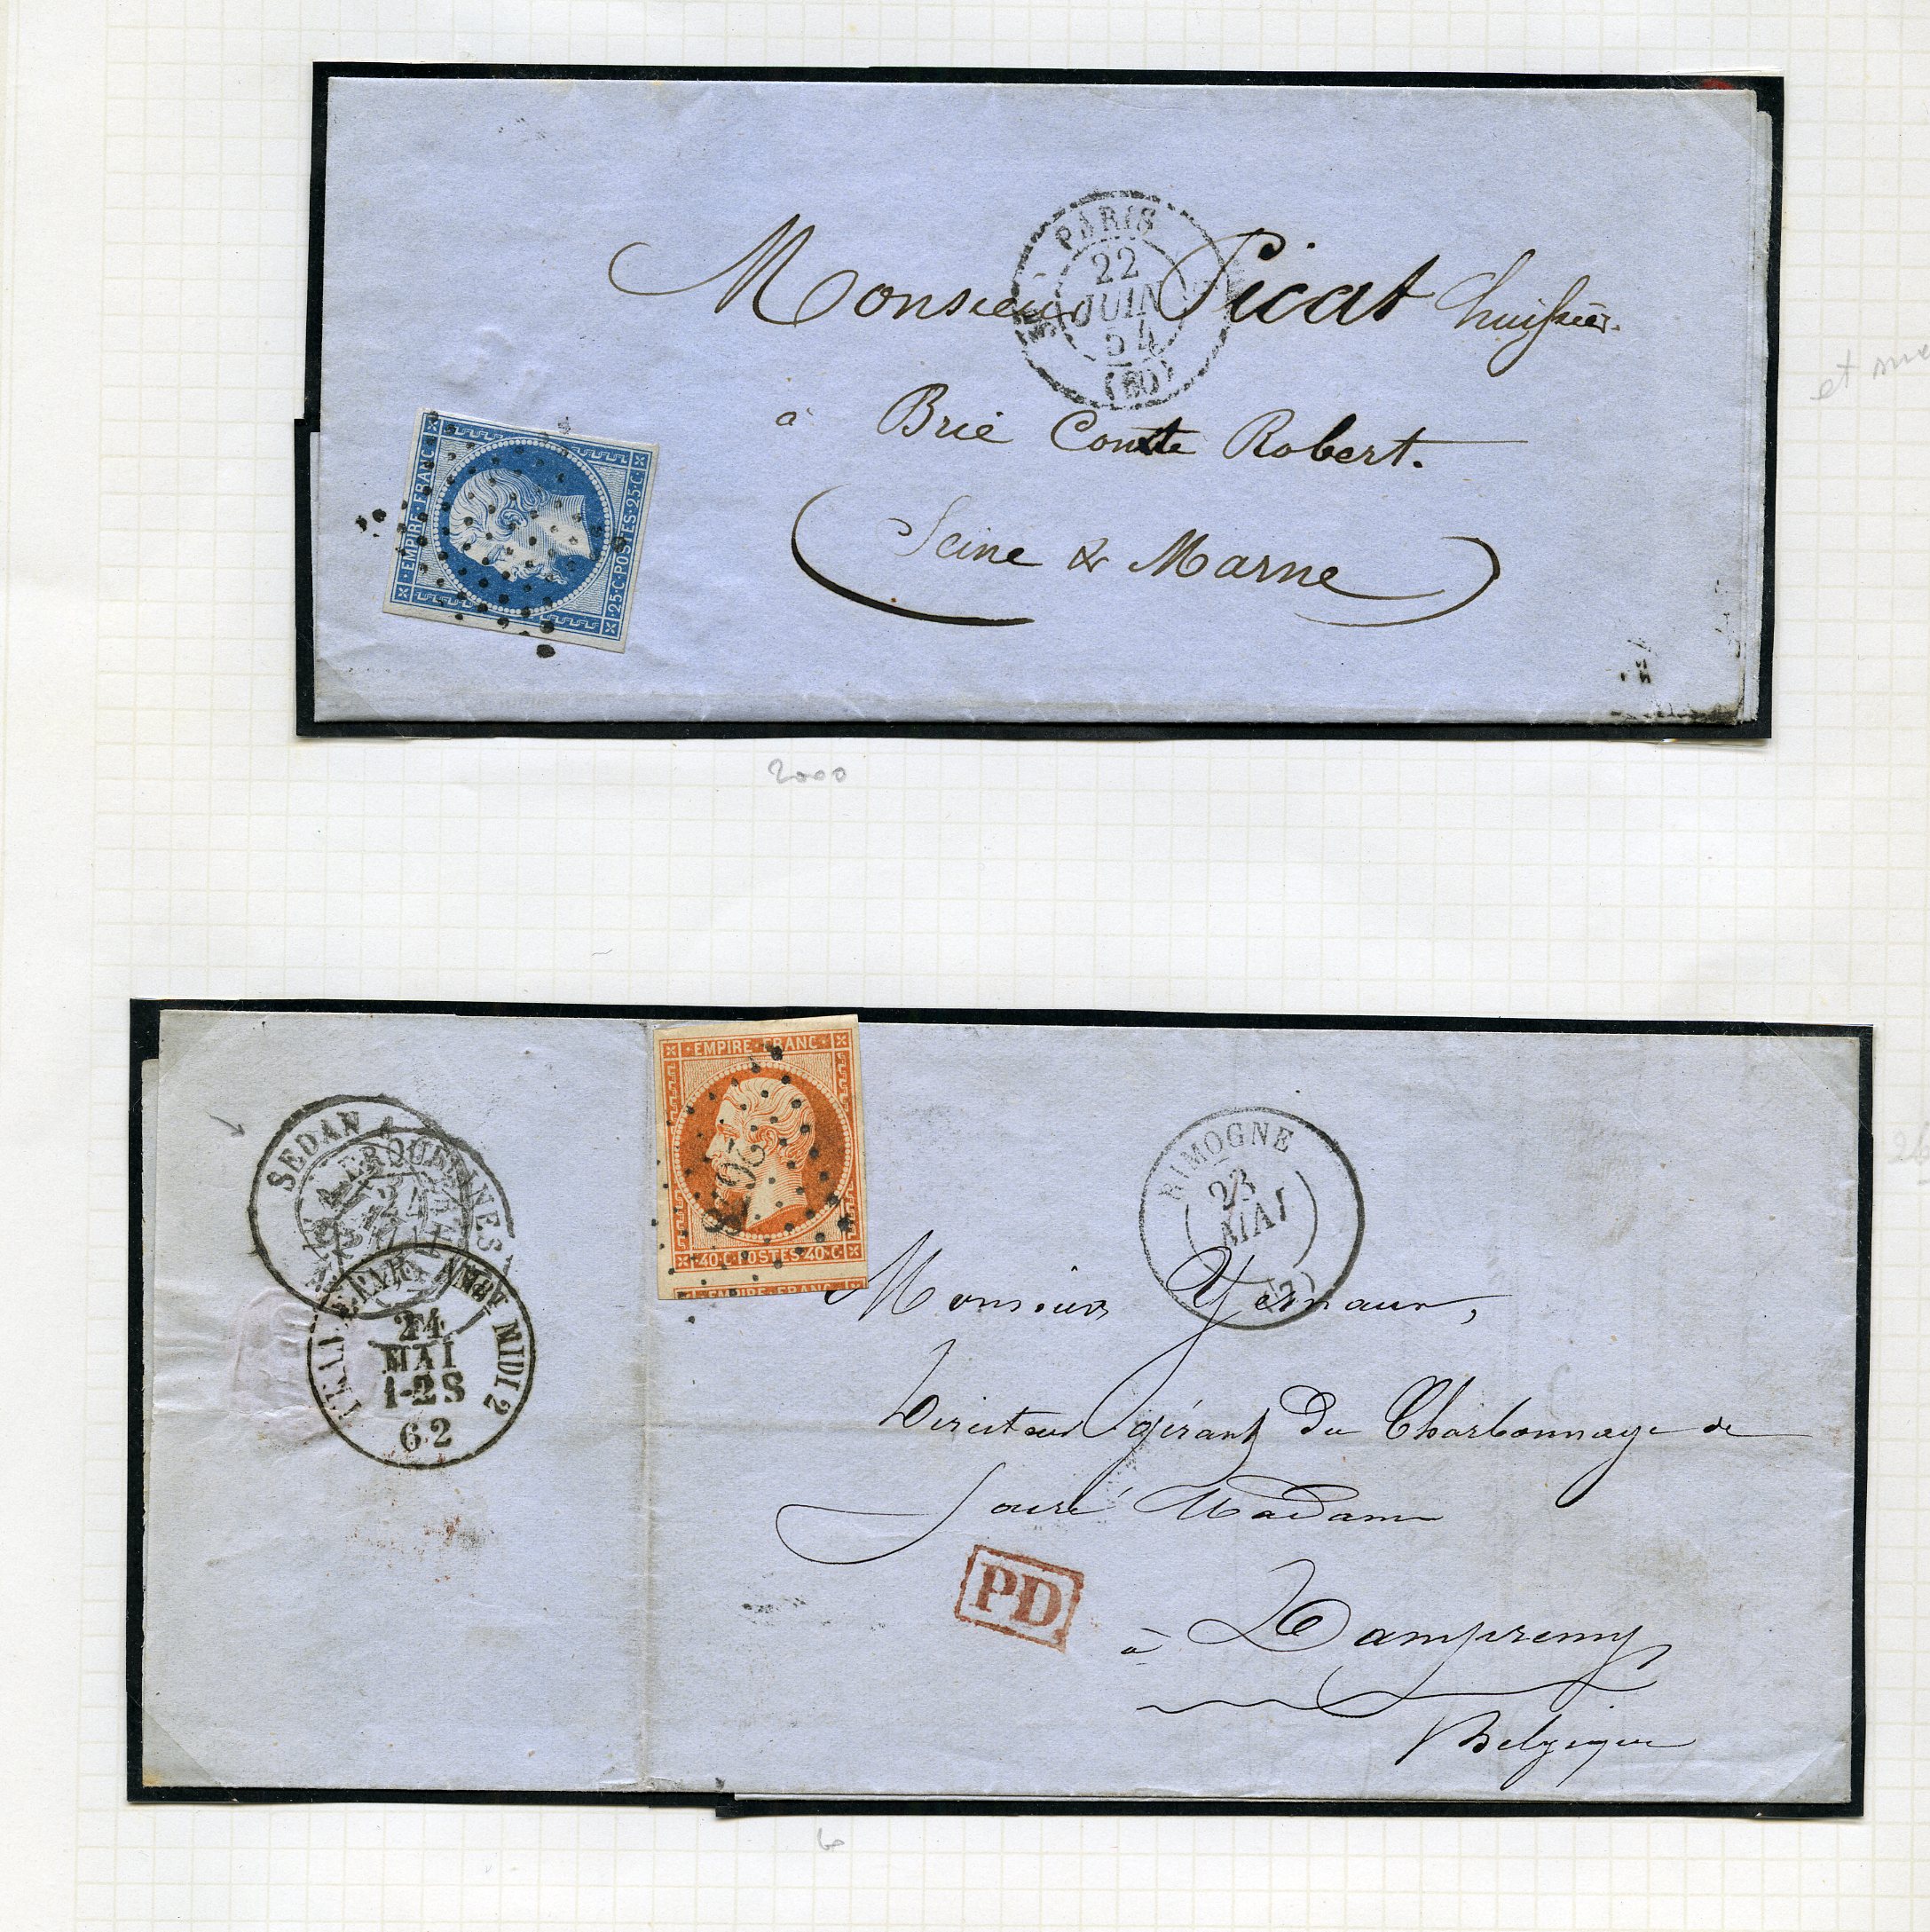 PARIS
22
JUIN
54
(60)
Monsieur Picat huissier.
à Brie Comte Robert.
Seine & Marne
EMPIRE·FRANC·
·25·C·POSTES·25·C·
2000
et
SEDAN A
ERQUELINES
24
·EMPIRE·FRANC·
2678
·40·C·POSTES·40·C·
·EMPIRE·FRANC·
RIMOGNE
23
MAI
(7)
MIDI 2
24
MAI
1-2S
62
Monsieur Yernaux,
Directeur gérant Du Charbonnage de
Sacré Madame
PD
à Dampremy
Belgique